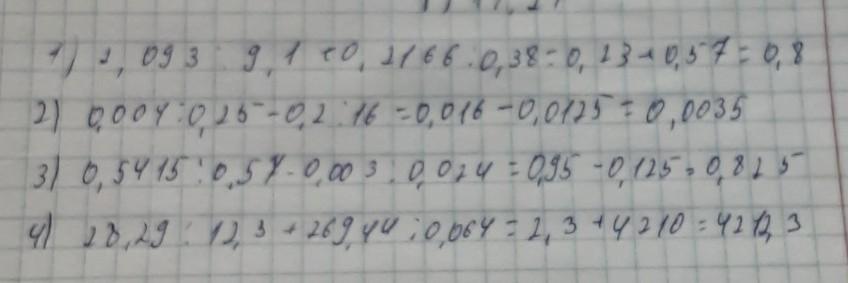 1) 2,093 : 9,1 + 0,2166 : 0,38 = 0,23 + 0,57 = 0,8
2) 0,004 : 0,25 - 0,2 : 16 = 0,016 - 0,0125 = 0,0035
3) 0,5415 : 0,57 - 0,003 : 0,024 = 0,95 - 0,125 = 0,825
4) 28,29 : 12,3 + 269,44 : 0,064 = 2,3 + 4210 = 4212,3